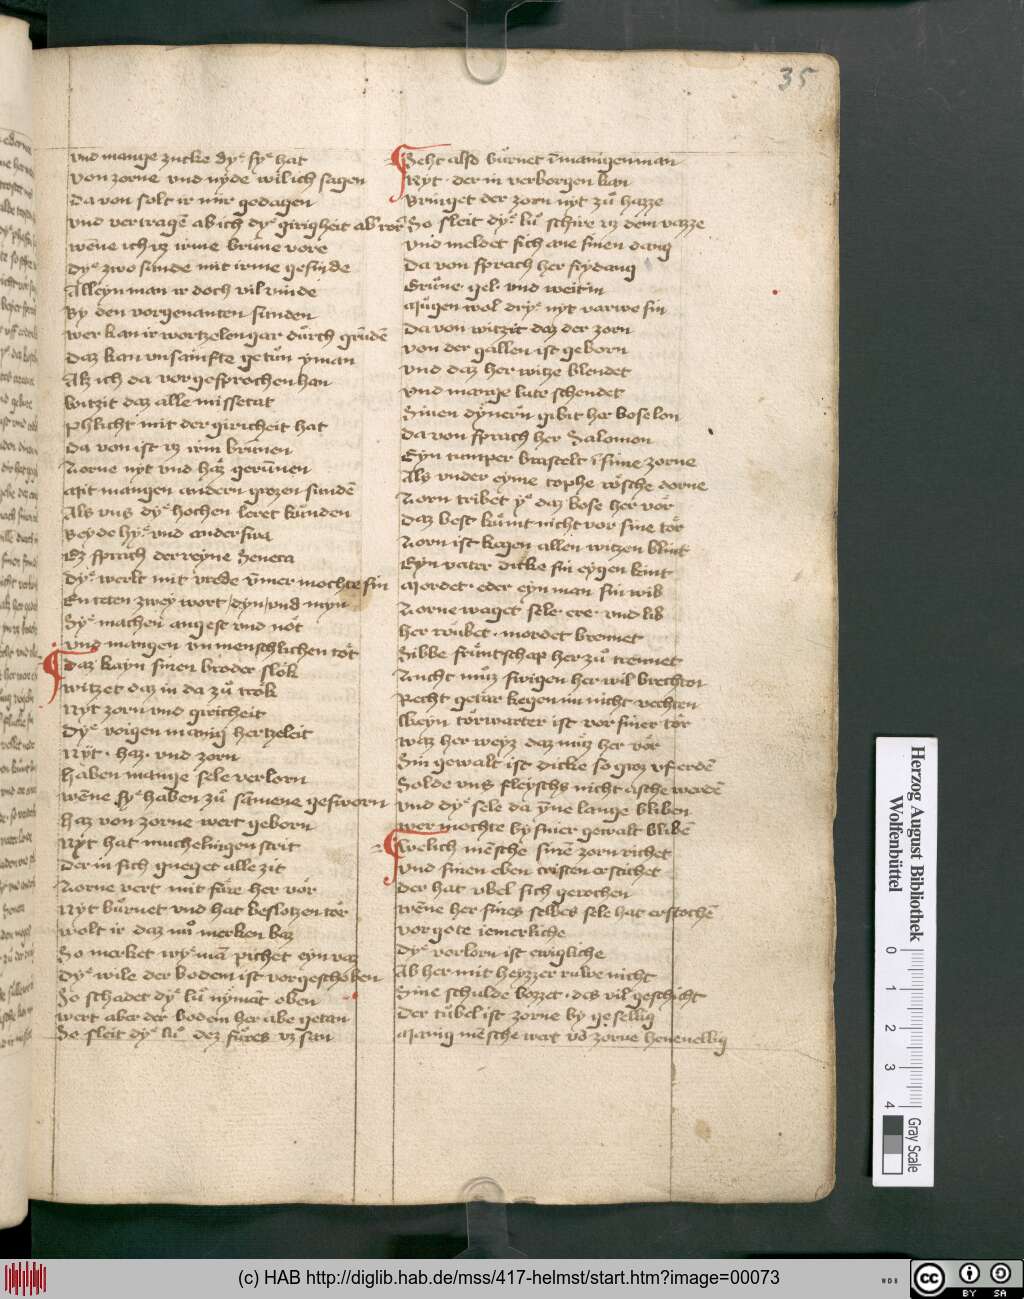 35
vnd mange zucke dyͤ syͤ hat
von zorne vnd nyde wil ich sagen
Da von solt ir mir gedagen
vnd vertragē ab ich dyͤ girigheit
wēne ich vz irme brune vore
Dyͤ zwo sunde mit irme gesinde
Alleyn man ir doch vil vinde
By den vorgenanten sunden
wer kan ir wortzelen gar durch grūdē
Daz kan vnsamfte getun yman
Alz ich da vor gesprochen han
witzit daz alle missetat
phlicht mit der giricheit hat
Da von ist vz irm brunen
Zorne nyt vnd haz gerunnen
Mit mangen andern grozen sundē
Als vns dyͤ hochen leret kunden
Beyde hyͤ vnd anderswa
Ez sprach der reyne Seneca
Dyͤ werlt mit vrede ymer mochte sin
En teten zwey wort / dyn / vnd myn
Syͤ machen angest vnd not
vnd mangen vnmenschlichen tot
Daz kayn sinen bruder slok
witzet daz in da zu trok
Nyt zorn vnd giricheit
Dyͤ voigen manig hertzeleit
Nyt · haz · vnd zorn
haben mange sele verlorn
wēne syͤ haben zu samene gesworn
haz von zorne wert geborn
Nyt hat muchelingen strit
Der in sich gneget alle zit
Zorne vert mit fare her vor
Nyt burnet vnd hat beslotzen tor
wolt ir daz nu merken baz
So merket wyͤ mā pichet eyn vaz
Dyͤ wile der bodem ist vorgeschoben
So schadet dyͤ lu nymāt oben
wert aber der bodem her abe getan
So sleit dyͤ lu dez fures vz san
Seht also burnet ī manigen man
Nyt · der in verborgen kan
Bringet der zorn nyt zu hazze
So sleit dyͤ lu schire vz dem vazze
vnd meldet sich ane sinen dang
Da von sprach her frydang
Grune · gel · vnd weitin
Mugen wol dryͤ nyt varwe sin
Da von witzit daz der zorn
von der gallen ist geborn
vnd daz her witze blendet
vnd mange lute schendet
Sinen dynern gibit her bose lon
Da von sprach her Salomon
Eyn tumper brastelt ī sime zorne
Als vnder eyme tophe rosche dorne
Zorn tribet yͤ daz bose her vor
Daz best kumt nicht vor sine tor
Zorn ist kegen allen witzen blint
Eyn vater dicke sin eygen kint
Mordet · eder eyn man sin wib
Zorne waget sele · ere · vnd lib
her roubet · mordet brennet
Sibbe fruntschap her zu trennet
Zucht muz swigen her wil brechten
Recht getar kegen im nicht vechten
Keyn torwarter ist vor siner tor
waz her weyz daz muz her vor
Sin gewalt ist dicke so groz vf erdē
Solde vns fleyschs nicht asche werdē
vnd dyͤ sele da yne lange bliben
wer mochte by siner gewalt blibē
welich mēsche sinē zorn richet
vnd sinen eben cristen ersticht
der hat vbel sich gerochen
wēne her sines selbes sele hat erstochē
vor gote iemerliche
Dyͤ verlorn ist ewigliche
Ab her mit heyzzer ruwe nicht
Sine schulde bozzet · des vil geschicht
Der tubel ist zorne by gesellig
Manig mēsche wert vō zorne
Herzog August Bibliothek
Wolfenbüttel
0
1
2
3
4
Gray Scale
(c) HAB http://diglib.hab.de/mss/417-helmst/start.htm?image=00073
WDB
cc
BY SA